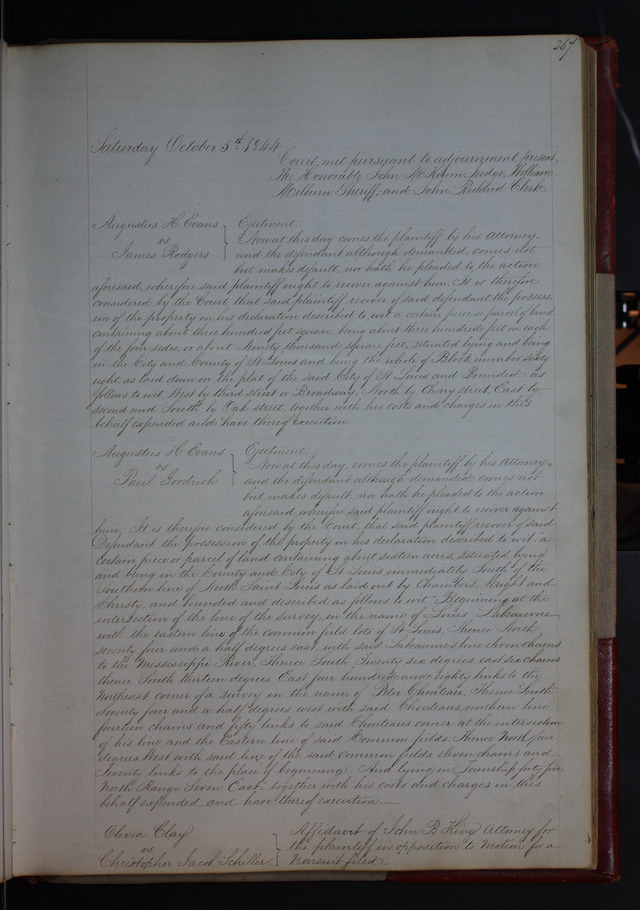 267
Saturday October 5th 1844
Court met pursuant to adjournment present,
The Honorable John M Krum Judge, William
Milburn Sheriff, and John Ruland Clerk.
Augustus H Evans
vs
James Rodgers
Ejectment.
Now at this day comes the plaintiff by his Attorney,
and the defendant although demanded, comes not
but makes default, nor hath he pleaded to the action
aforesaid, wherefore said plaintiff ought to recover against him. It is therefore
considered by the Court that said plaintiff recover of said defendant the possess-
ion of the property in his declaration described to wit a certain piece or parcel of land
containing about three hundred feet square being about three hundred feet on each
of the four sides, or about Ninety thousand square feet, situated lying and being
in the City and County of St Louis and being the whole of Block number sixty
eight, as laid down on the plat of the said City of St Louis and Bounded as
follows to wit West by third street or Broadway, North by Cherry street, East by
second and South by Oak street, together with his costs and charges in this
behalf expended and have thereof execution.
Augustus H Evans
vs
Paul Goodrich
Ejectment.
Now at this day, comes the plaintiff by his Attorney,
and the defendant although demanded comes not
but makes default, nor hath he pleaded to the action
aforesaid wherefore said plaintiff ought to recover against
him, It is therefore considered by the Court, that said plaintiff recover of said
Defendant the possession of the property in his declaration described to wit a
certain piece or parcel of land containing about sixteen acres, situated lying
and being in the County and City of St Louis immediately South of the
Southern line of North Saint Louis as laid out by Chambers, Wright and
Christy, and bounded and described as follows to wit Beginning at the
intersection of the line of the survey, in the name of Louis Labeaume
with the eastern line of the common field lots of St Louis, Thence North
seventy four and a half degrees east, with said Labeaumes line eleven chains
to the Mississippi River, Thence South Twenty six degrees east six chains
thence South thirteen degrees East four hundred and eighty links to the
Northeast corner of a survey in the name of Peter Chouteau, Thence South
seventy four and a half degrees west with said Chouteaus northern line
fourteen chains and fifty links to said Chouteaus corner at the intersection
of his line and the Eastern line of said Common fields Thence North four
degrees West with said line of the said common fields eleven chains and
Seventy links to the place of beginning. And lying in Township forty five
North Range Seven East, together with his costs and charges in this
behalf expended and have thereof execution.
Clevia Clay
vs
Christopher Jacob Schiller
Affidavit of John B King Attorney for
the plaintiff in opposition to Motion for a
Nonsuit filed.